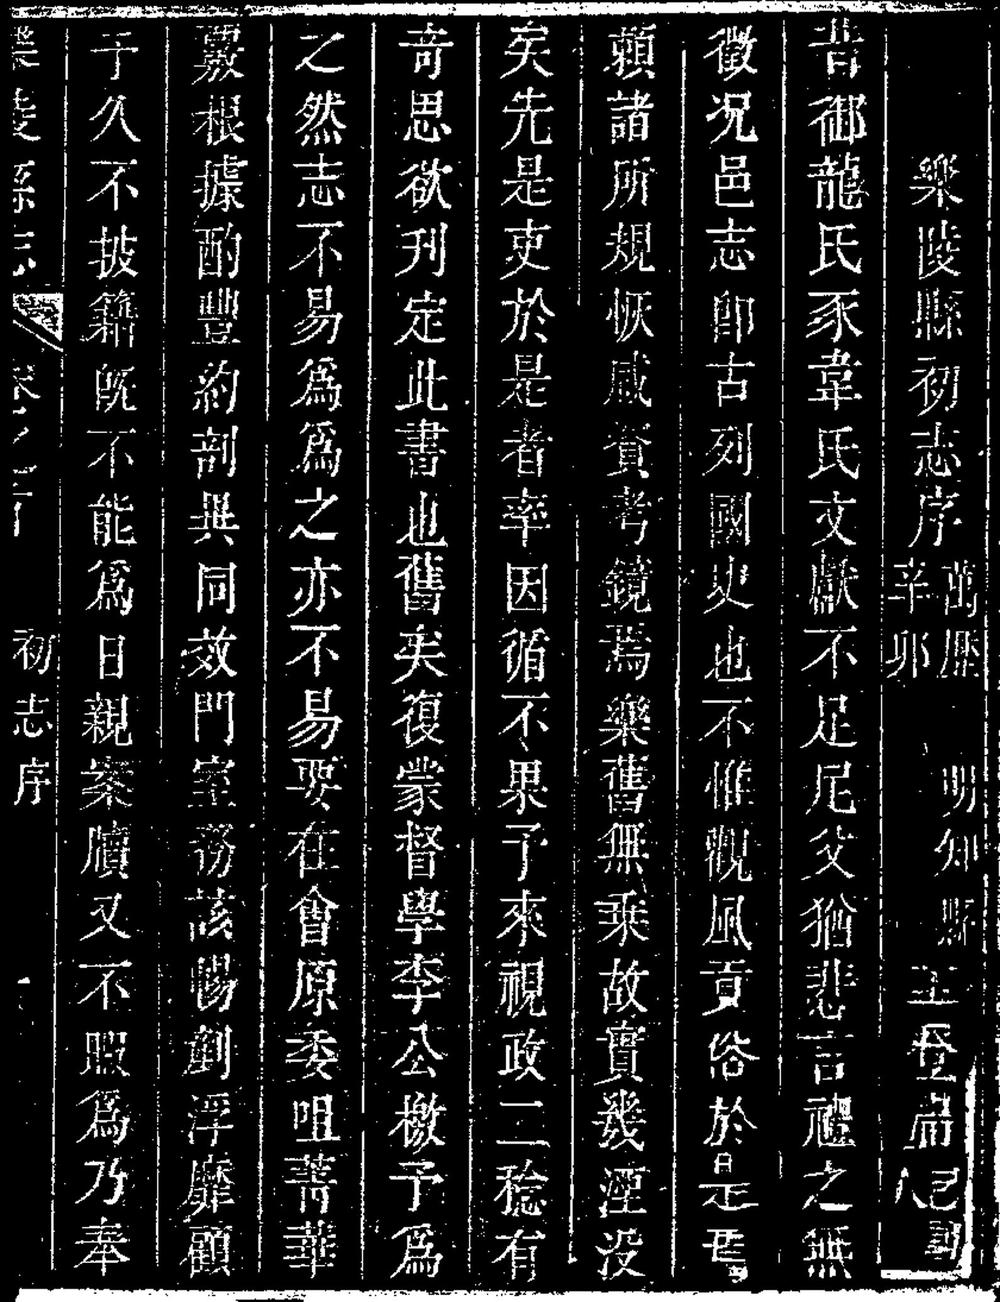 樂陵縣初志序 萬曆辛卯 明知縣 王登庸 邑人
昔御龍氏豕韋氏文獻不足尼父猶悲言禮之無
徵况邑志卽古列國史也不惟觀風貢俗於是焉
賴諸所規恢感賁考鏡焉樂舊無乘故實幾湮没
矣先是吏於是者率因循不果予來視政二稔有
奇思欲刊定此書也舊矣復蒙督學李公檄予爲
之然志不易爲爲之亦不易要在會原委咀菁華
覈根據酌豐約剖異同效門室務該暢劌浮靡顧
于久不披籍旣不能爲日親案牘又不暇爲乃奉
樂陵縣志 卷之七下 初志序